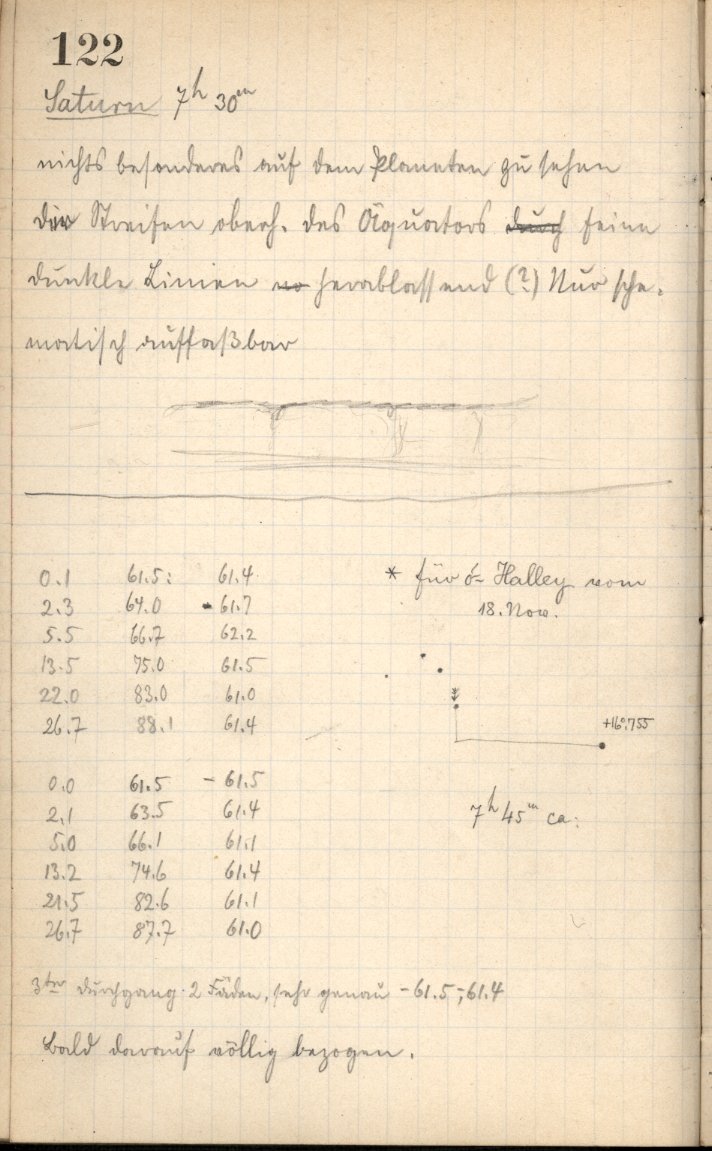 122
Saturn 7h 30m
nichts besonderes auf dem Planeten zu sehen
Streifen oberh. des Äquators durch feine
dunkle Linien herablassend (?) Nur sche-
matisch auffaßbar
0.1 61.5: 61.4
2.3 64.0 61.7
5.5 66.7 62.2
13.5 75.0 61.5
22.0 83.0 61.0
26.7 88.1 61.4
* für Halley vom
18. Nov.
+16°,755
0.0 61.5 - 61.5
2.1 63.5 61.4
5.0 66.1 61.1
13.2 74.6 61.4
21.5 82.6 61.1
26.7 87.7 61.0
7h 45m ca:
3ter Durchgang 2 Fäden, sehr genau - 61.5; 61.4
Bald darauf völlig bezogen.